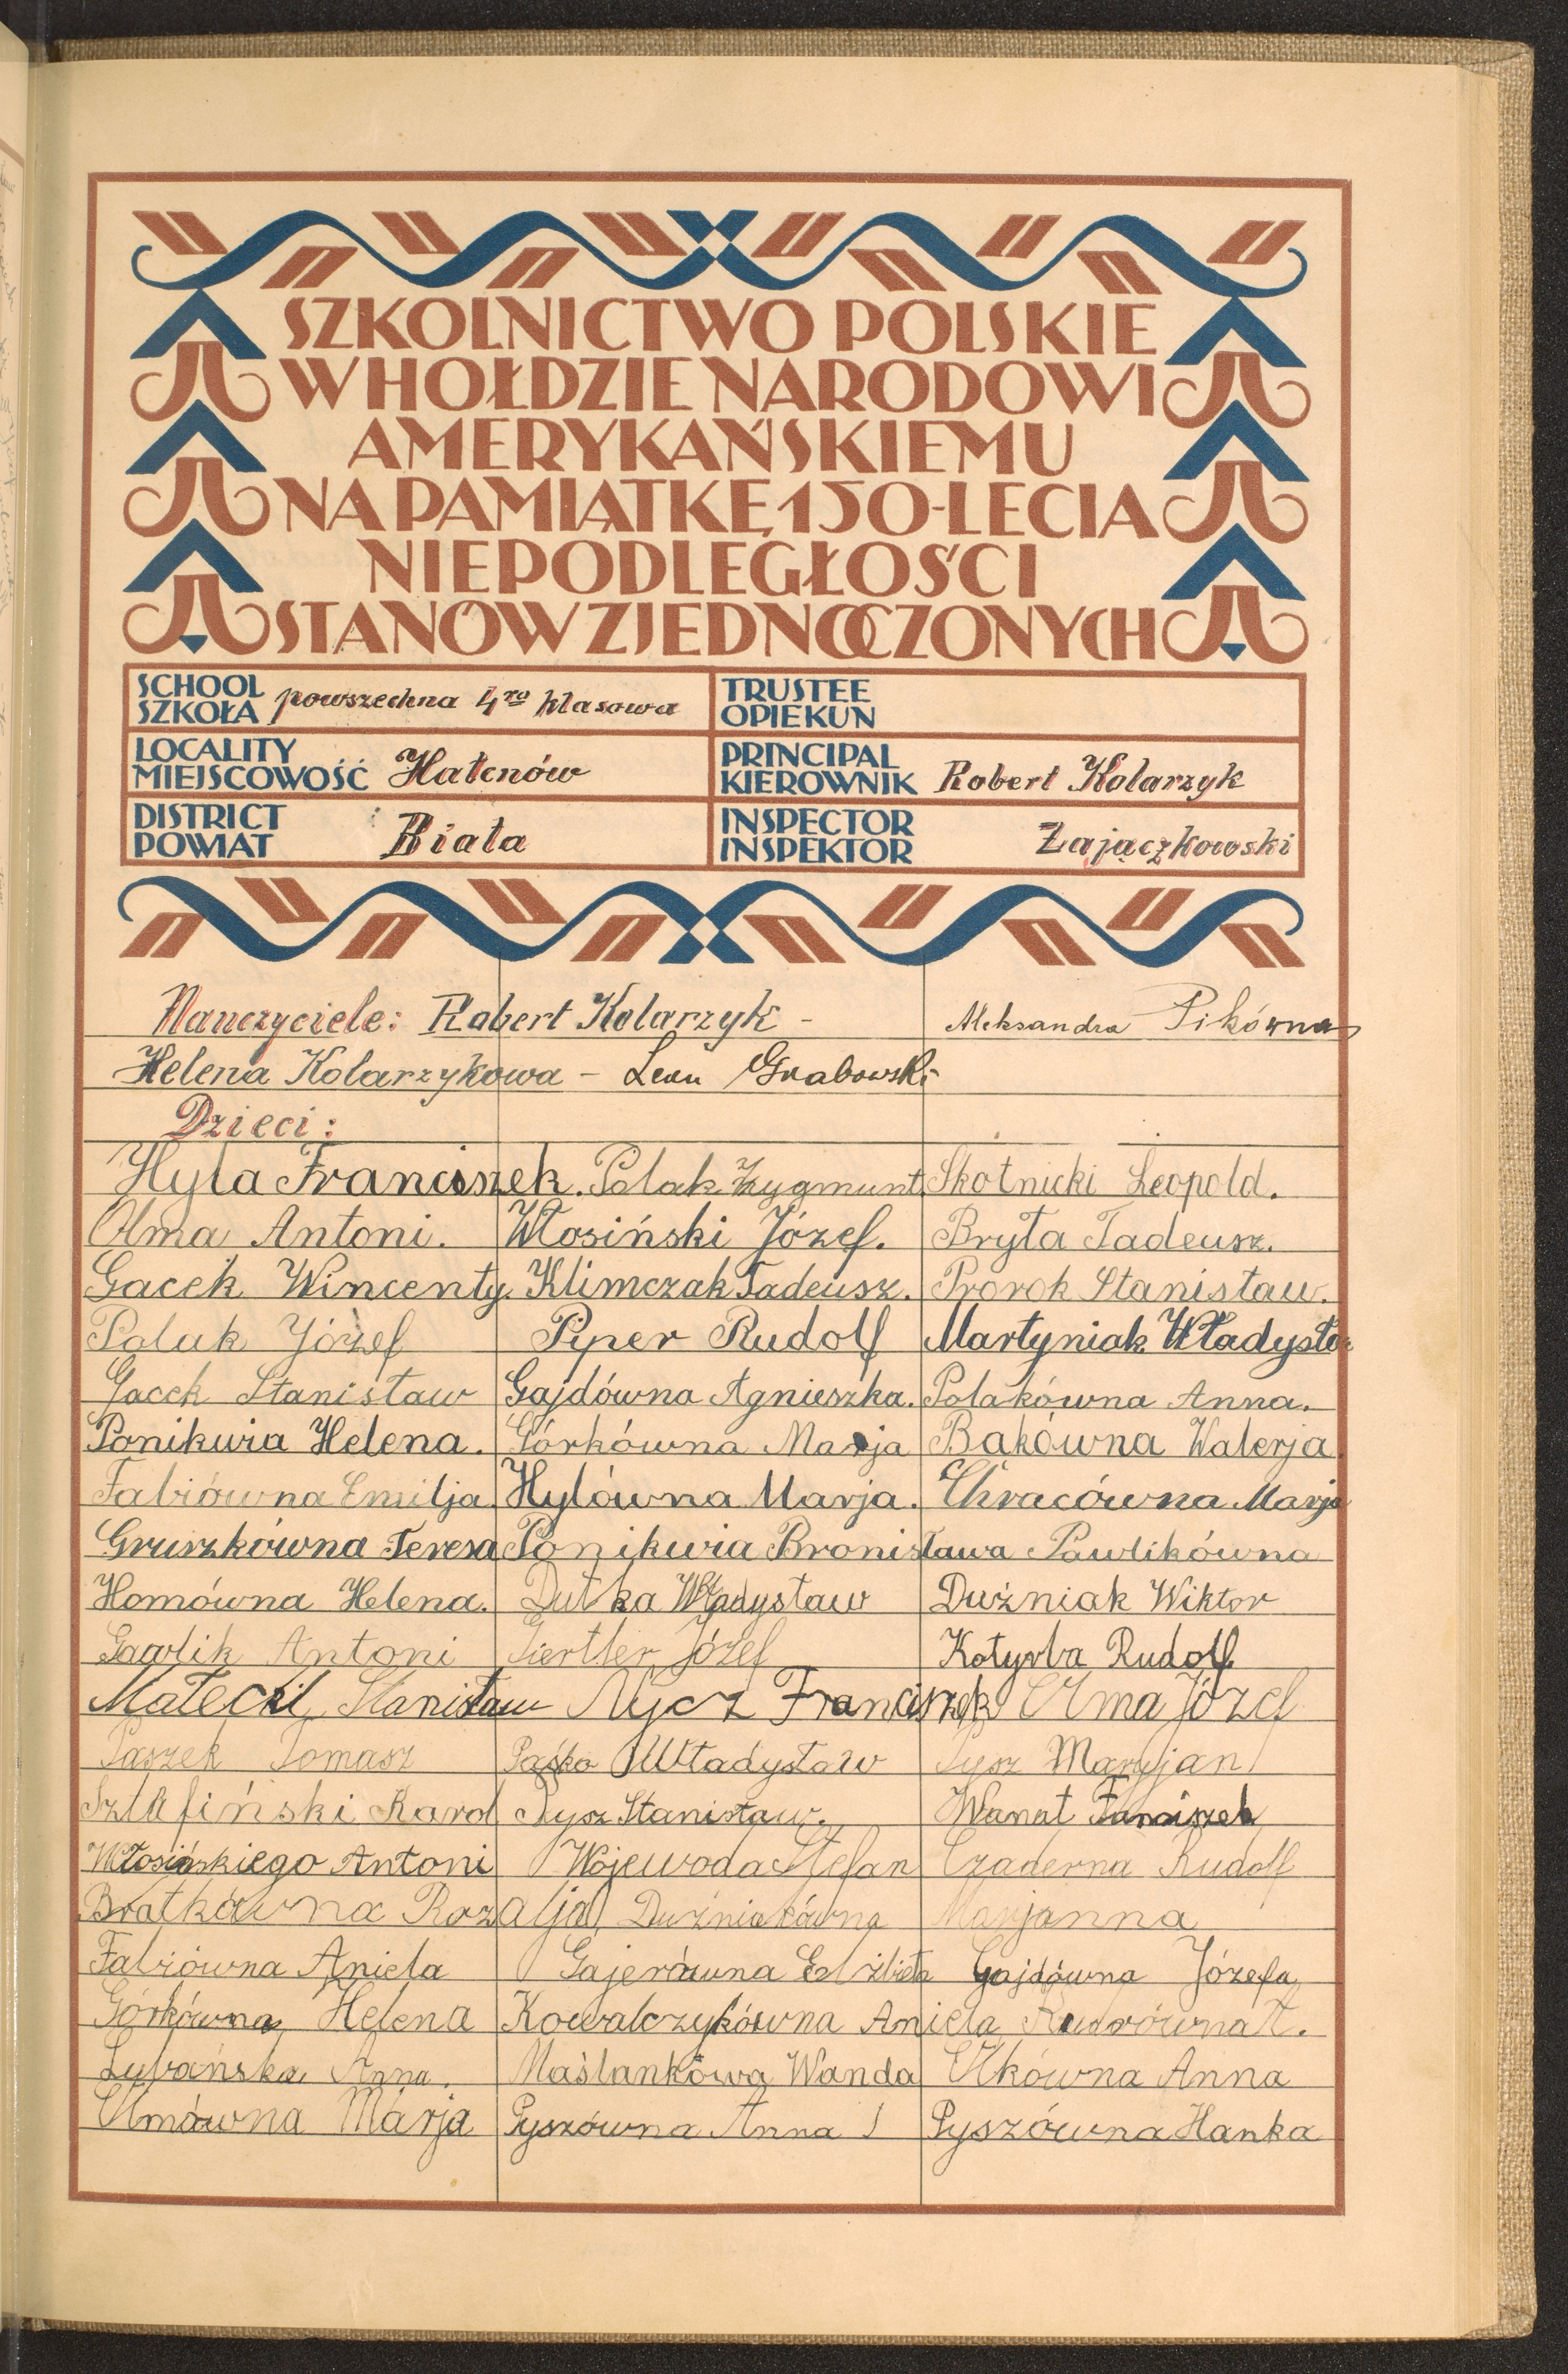 SZKOLNICTWO POLSKIE
W HOŁDZIE NARODOWI
AMERYKAŃSKIEMU
NA PAMIĄTKĘ 150-LECIA
NIEPODLEGŁOŚCI
STANÓW ZJEDNOCZONYCH
SCHOOL SZKOŁA powszechna 4ro klasowa
TRUSTEE OPIEKUN
LOCALITY MIEJSCOWOŚĆ Hałcnów
PRINCIPAL KIEROWNIK Robert Kolarzyk
DISTRICT POWIAT Biała
INSPECTOR INSPEKTOR Zajączkowski
Nauczyciele: Robert Kolarzyk - Aleksandra Pikówna
Helena Kolarzykowa - Leon Grabowski
Dzieci:
Hyla Franciszek. Polak Zygmunt Skotnicki Leopold.
Olma Antoni. Włosiński Józef. Bryła Tadeusz.
Gacek Wincenty. Klimczak Tadeusz. Prorok Stanisław.
Polak Józef Pyper Rudolf Martyniak Władysław
Gacek Stanisław Gajdówna Agnieszka. Polakówna Anna.
Ponikwia Helena. Górkówna Marja Bakówna Walerja.
Fabiówna Emilja. Hylówna Marja. Chracówna Marja
Gruszkówna Teresa Ponikwia Bronisława Pawlikówna
Homówna Helena. Dutka Władysław Duźniak Wiktor
Gawlik Antoni Józef Kotyrba Rudolf
Małecki Stanisław Nycz Franciszek Olma Józef
Paszek Tomasz Paśko Władysław Pysz Maryjan
Karol Pysz Stanisław. Wanat Franciszek
Włosińskiego Antoni Wojewoda Stefan Czaderna Rudolf
Bratkówna Rozalja Duźniakówna Marjanna
Fabiówna Aniela Gajerówna Elżbieta Gajdówna Józefa
Górkówna Helena Kowalczykówna Aniela
Anna. Maślankowa Wanda Olkówna Anna
Olmówna Marja Pyszówna Anna Pyszówna Hanka